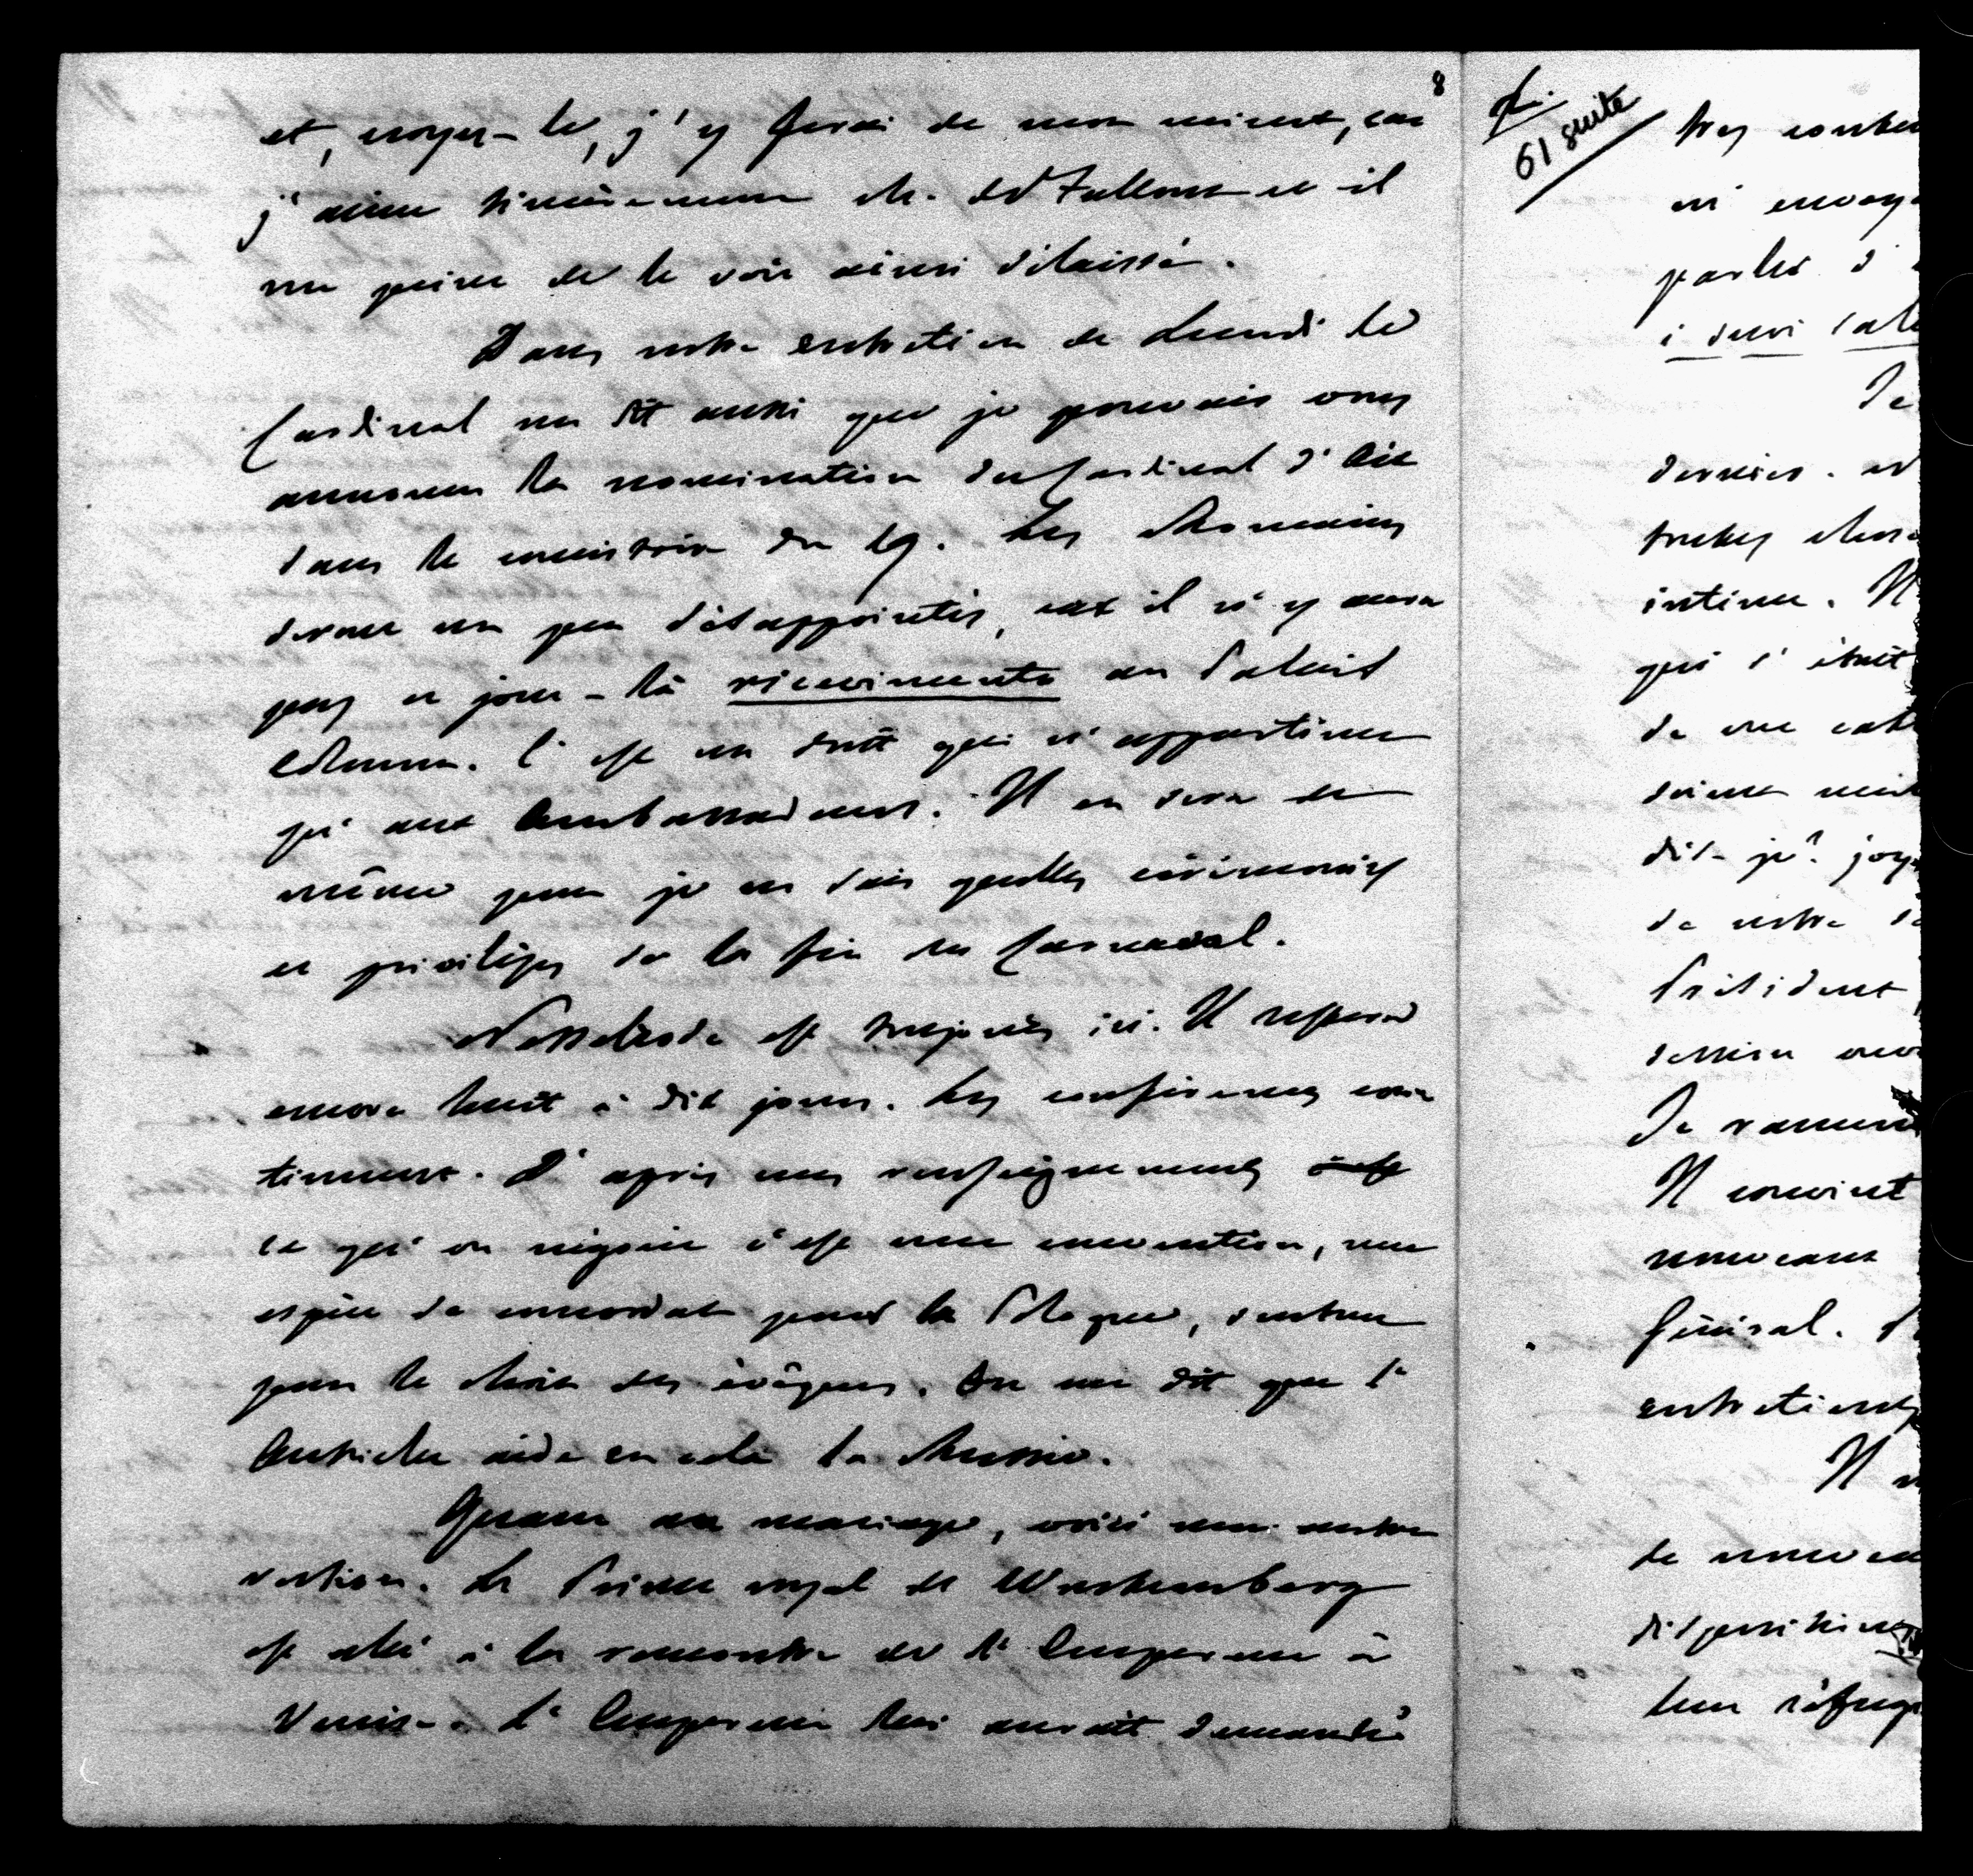 8
et, croyez-le, j'y ferai de mon mieux, car
j'aime sincèrement M. de Falloux et il
me peine de le voir ainsi délaissé.
Dans notre entretien de Lundi le
Cardinal me dit aussi que je pouvais vous
annoncer la nomination du Cardinal d'Aix
dans le consistoire du 19. Les Romains
seront un peu désappointés, car il n'y aura
pas ce jour-là ricevimento au Palais
Colonna. C'est un droit qui n'appartient
qu'aux Ambassadeurs. Il en sera de
même pour je ne sais quelles cérémonies
et privilèges de la fin du Carnaval.
Nesselrode est toujours ici. Il restera
encore huit à dix jours. Les conférences con
tinuent. D'après mes renseignements
ce qu'on négocie c'est une convention, une
espèce de concordat pour la Pologne, surtout
pour le choix des évêques. On me dit que l'
Autriche aide en cela la Russie.
Quant au mariage, voici une autre
version. Le Prince royal de Wurtemberg
est allé à la rencontre de l'Empereur à
Venise. L'Empereur lui aurait demandé
61 suite
très
ni
parler d'
Je
dernier. et
toutes
intime. Il
qui s'était
de vue
soient
dis-je?
de notre
Président
dessein
Je
Il convient
nouveaux
Général.
entretiens
Il
de nouveau
dispositions
leur